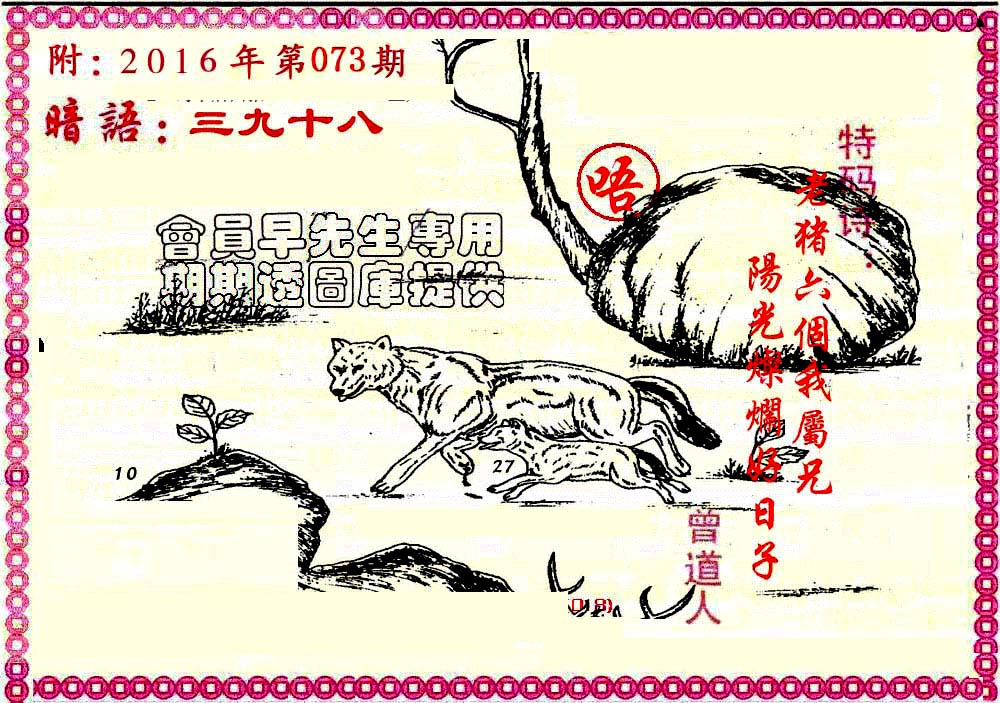 附：2016年第073期
暗語：三九十八
唔
特码诗：
老猪六個我屬兄
陽光燦爛好日子
會員早先生專用
期期透圖庫提供
10
27
曾道人